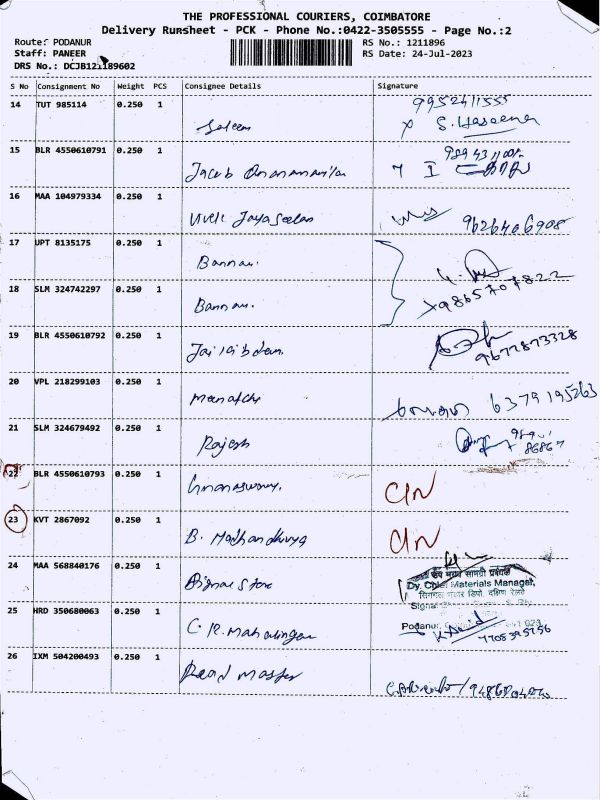 THE PROFESSIONAL COURIERS, COIMBATORE
Delivery Runsheet - PCK - Phone No.:0422-3505555 - Page No.:2
Route: PODANUR RS No.: 1211896
Staff: PANEER RS Date: 24-Jul-2023
DRS No.: DCJB121189602
S No Consignment No Weight PCS Consignee Details Signature
14 TUT 985114 0.250 1 Saleem 9952411555
x S. Haseena
15 BLR 4550610791 0.250 1 Jacob
16 MAA 104979334 0.250 1 Vivek Jayaseelan 9626406908
17 UPT 8135175 0.250 1 Bannari
18 SLM 324742297 0.250 1 Bannari 9865707822
19 BLR 4550610792 0.250 1 9677873328
20 VPL 218299103 0.250 1 Meenatchi 6379195263
21 SLM 324679492 0.250 1 Rajesh
22 BLR 4550610793 0.250 1 C/N
23 KVT 2867092 0.250 1 B. C/N
24 MAA 568840176 0.250 1 Signal Store
Dy. Chief Materials Manager,
25 HRD 350680063 0.250 1 C.R. Mahalingam
Podanur,
7708395756
26 IXM 504200493 0.250 1 Head Master